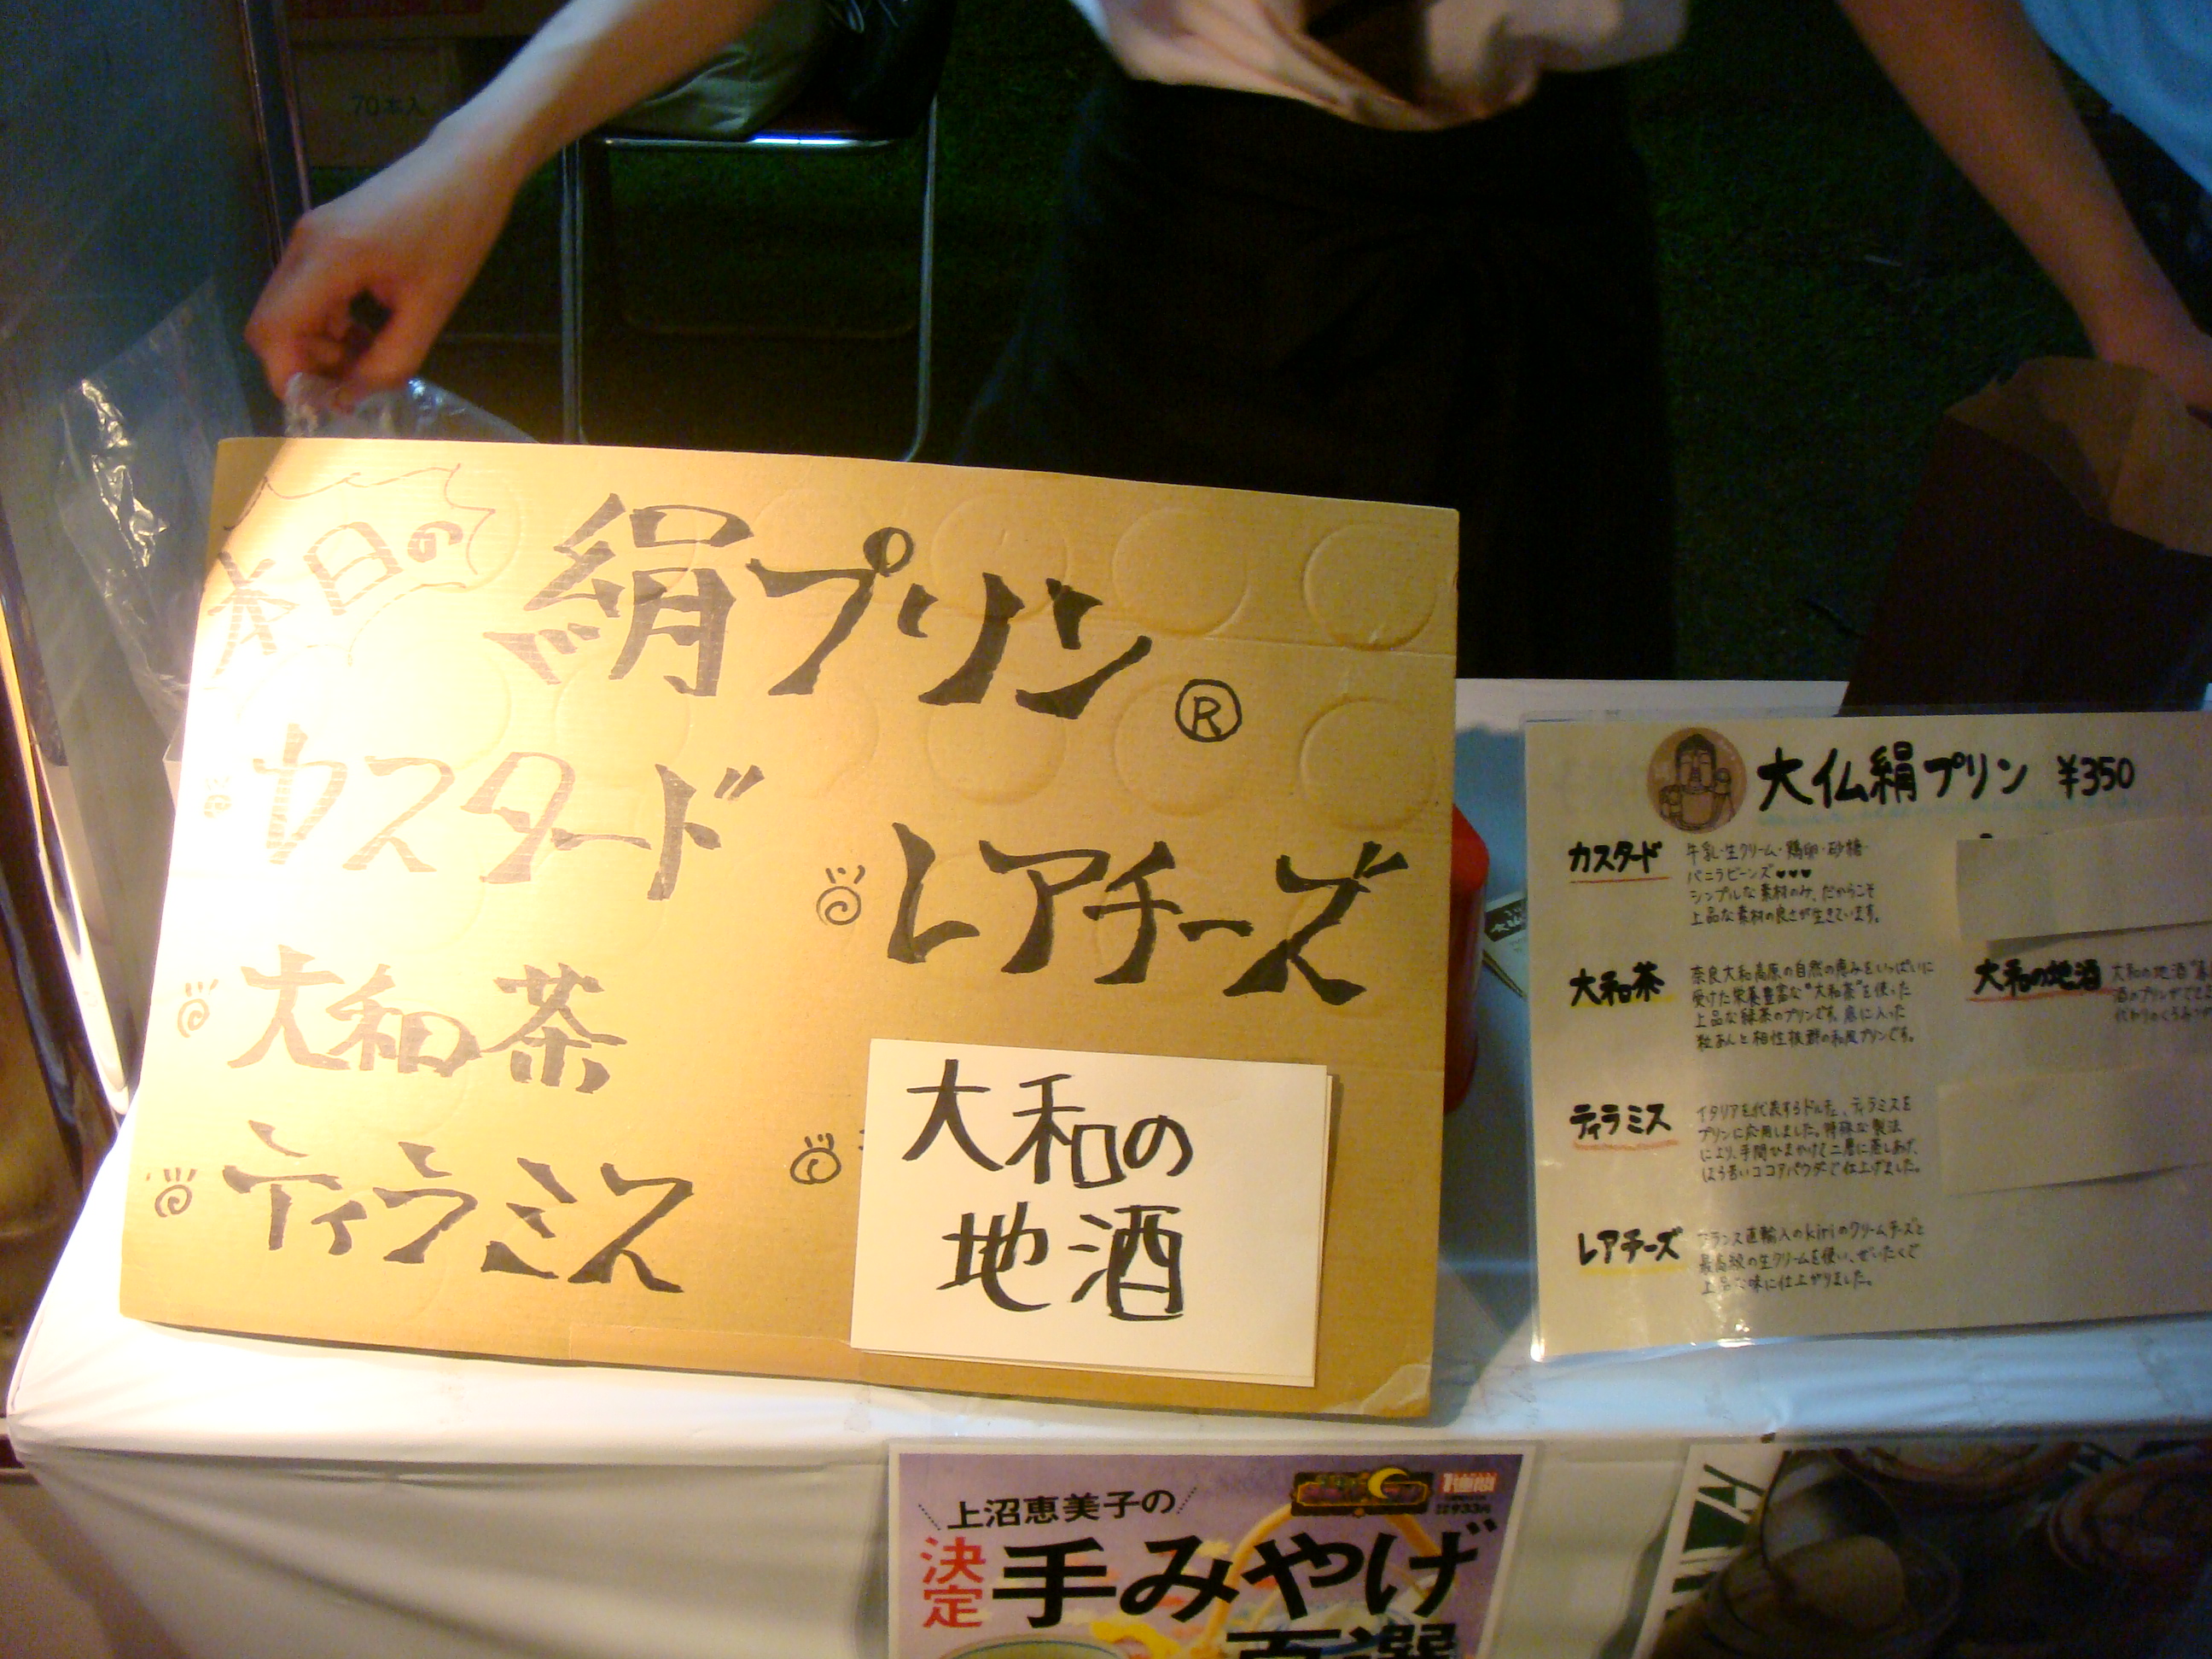 70本入
本日の
絹プリン®
カスタード
レアチーズ
大和茶
ティラミス
大和の
地酒
大仏絹プリン ¥350
カスタード
牛乳・生クリーム・鶏卵・砂糖・
バニラビーンズ♥♥♥
シンプルな素材のみ、だからこそ
上品な素材の良さが生きています。
大和茶
奈良大和高原の自然の恵みをいっぱいに
受けた栄養豊富な"大和茶"を使った
上品な緑茶のプリンです。底に入った
粒あんと相性抜群の和風プリンです。
大和の地酒
大和の地酒
ティラミス
イタリアを代表するドルチェ、ティラミスを
プリンに応用しました。特殊な製法
により、手間ひまかけて二層に蒸しあげ、
ほろ苦いココアパウダーで仕上げました。
レアチーズ
フランス直輸入のkiriのクリームチーズと
最高級の生クリームを使い、ぜいたくで
上品な味に仕上がりました。
上沼恵美子の
決定
手みやげ
百選
933円